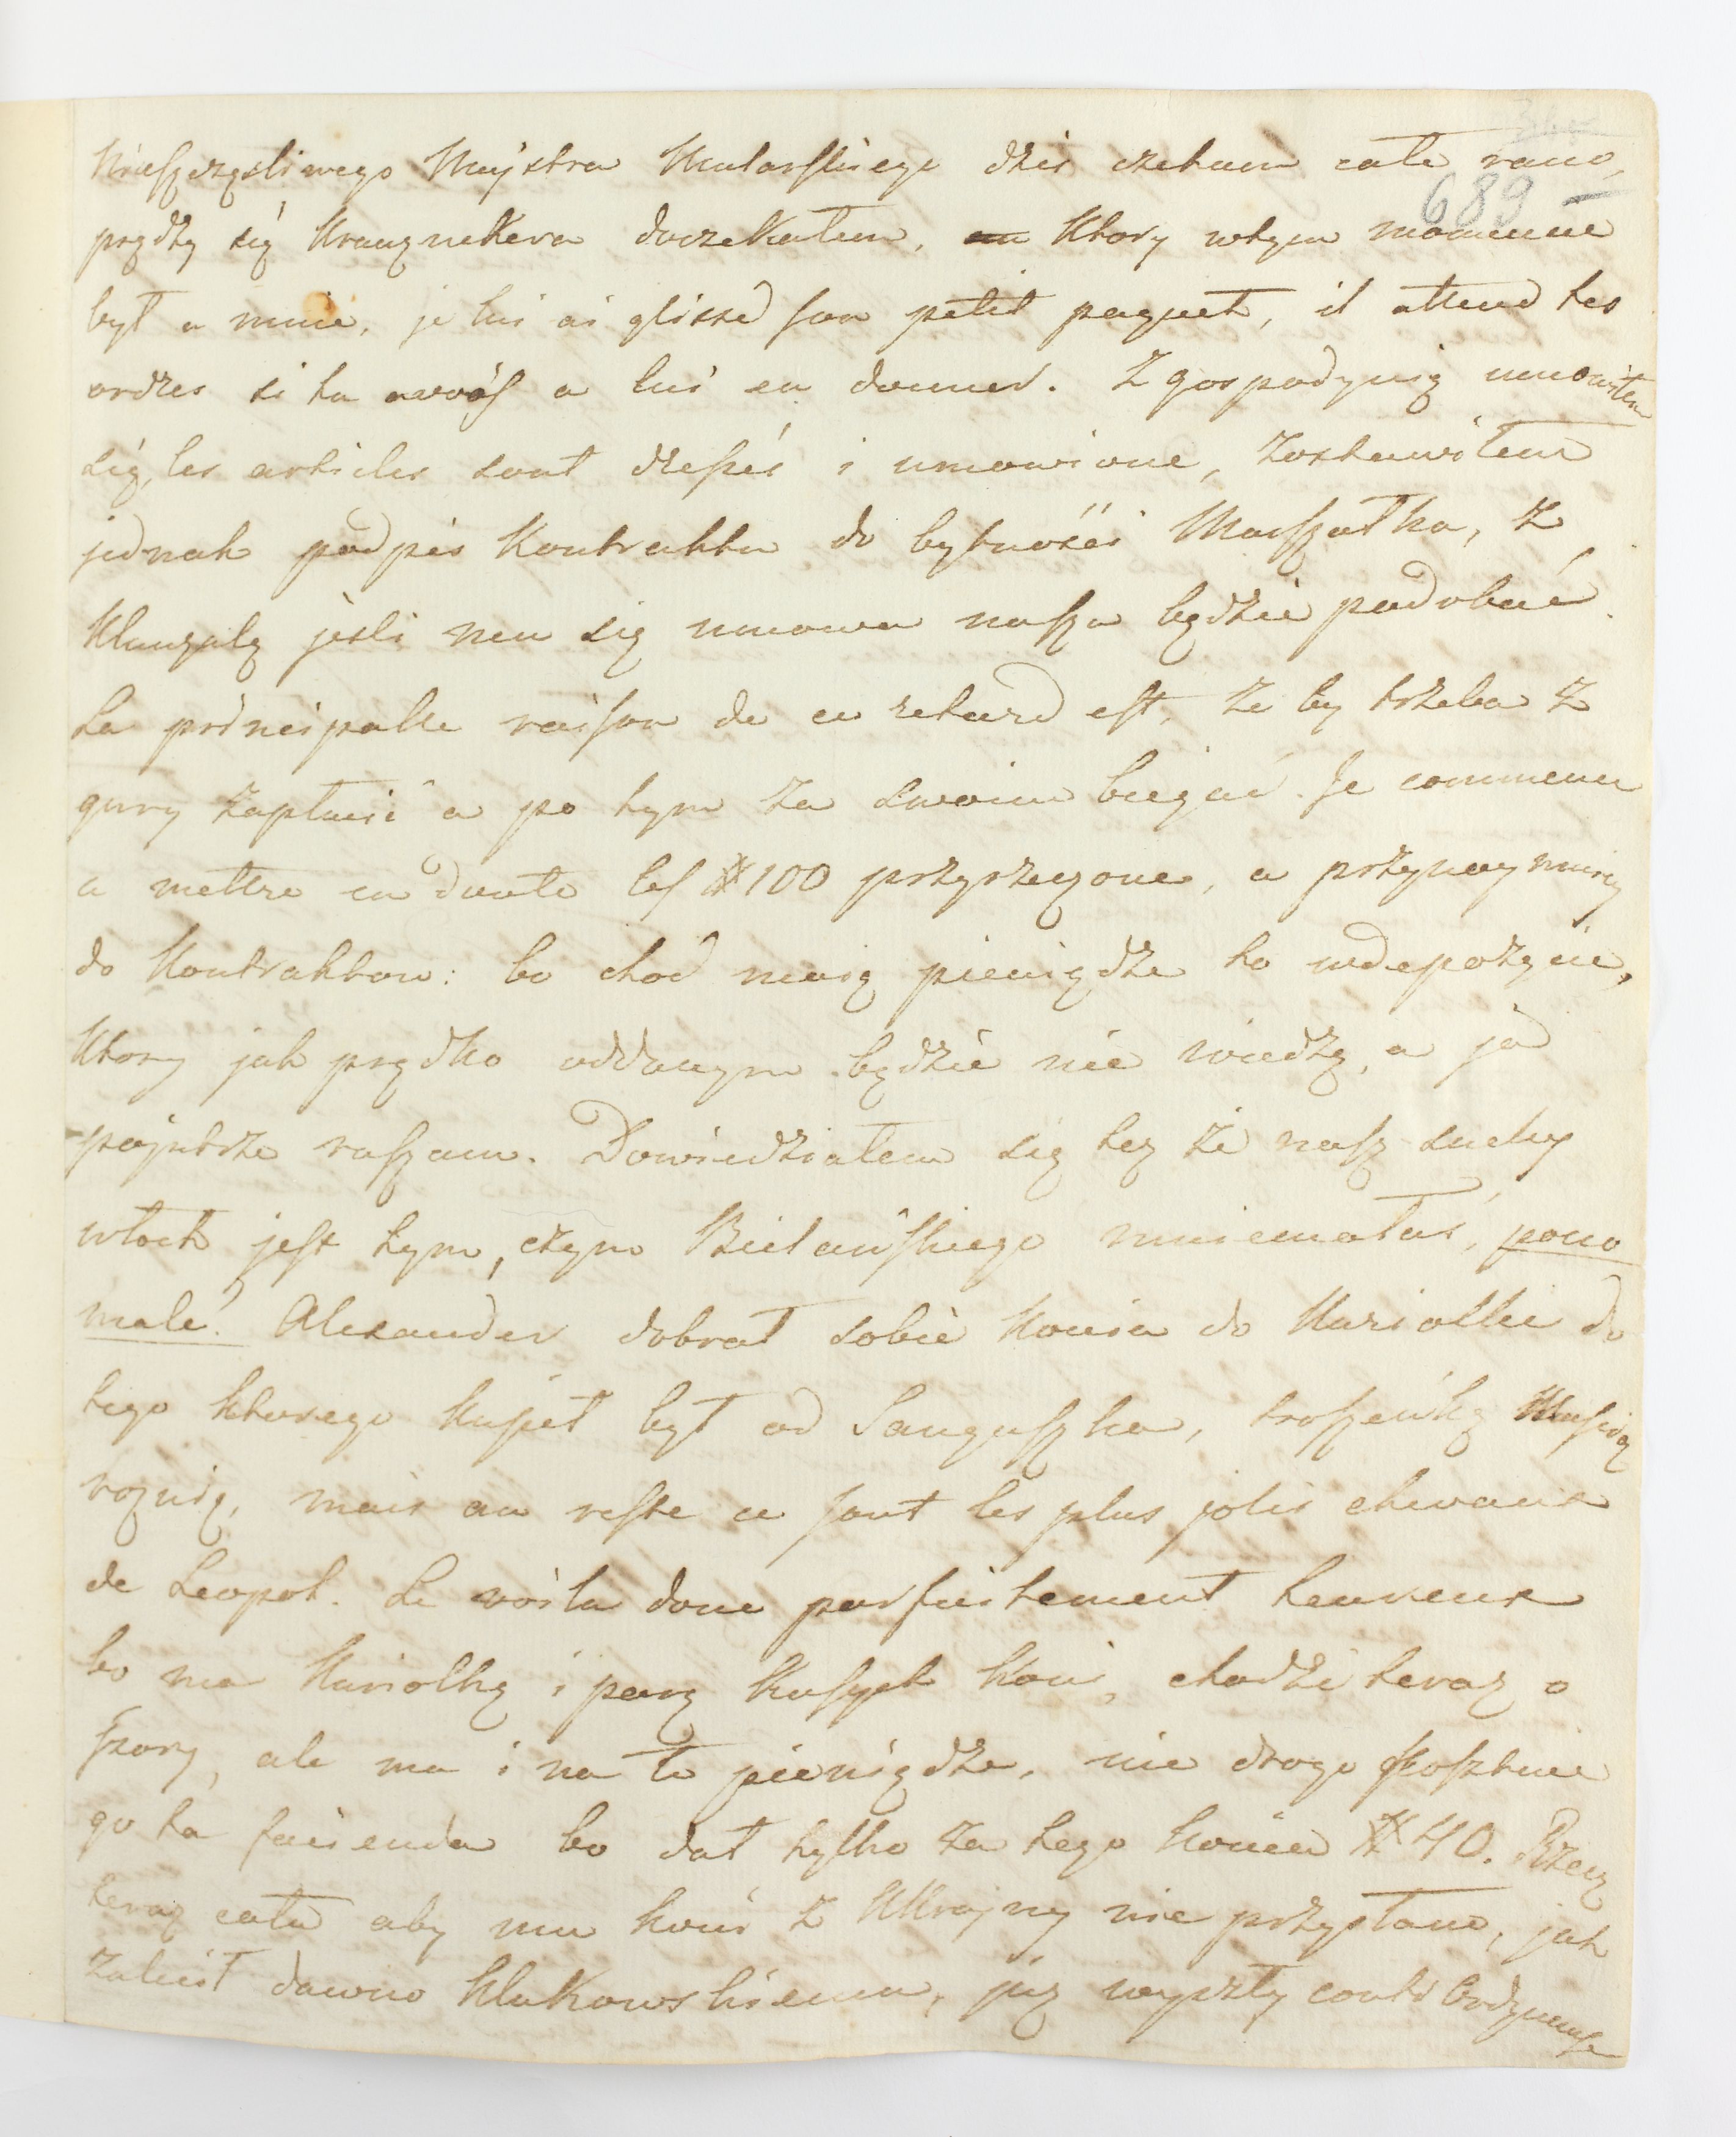 689
Nieszczęśliwego Majstra Mularskiego dziś czekam całe rano,
prędzy się Krauznekera doczekałem, ktory wtym momencie
był u mnie, je lui ai glissé son petit paquet, il attend tes
ordres si tu avois a lui en donner. Z gospodynią umowiłem
się, les articles sont dressés i umowione, zostawiłem
jednak podpis Kontraktu do bytności Marszałka, z
Klauzulą jesli mu się umowa nasza będzie podobać.
La principalle raison de ce retard est, że by trzeba z
gury zapłacić a po tym za swoim biegać. Je commence
a mettre en doute les # 100 przyrzeczone, a przynaymniey
do Kontraktow: bo choć maią pieniądze to w depozycie,
Ktory jak prędko oddanym będzie nie wiedzą, a ja
pojutrze ruszam. Dowiedziałem się też że nasz suchy
włoch jest tym, czym Bielańskiego mniemałaś, pono
malé. Alexander dobrał sobie Konia do Kariolki do
tego Ktorego Kupił był od Sanguszka, troszeńkę
rożnią, mais au reste ce sont les plus jolis chevaux
de Leopol. Le voila donc parfaitement heureux
bo ma Kariolkę i parę Kusych Koni, chodzi teraz o
szory, ale ma i na to pieniądze, nie drogo kosztuie
go ta facienda bo dał tylko za tego konia # 40. Rzecz
teraz cała aby mu koni z Ukrajny nie przysłano, jak
zalecił dawno Klukowskiemu, już wyszły contrordynanse